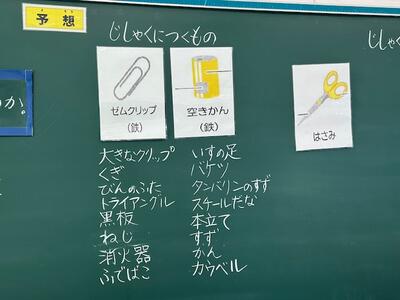 予想
じしゃくにつくもの
ゼムクリップ
(鉄)
空きかん
(鉄)
大きなクリップ
くぎ
びんのふた
トライアングル
黒板
ねじ
消火器
ふでばこ
いすの足
バケツ
タンバリンのすず
スチールだな
本立て
すず
かん
カウベル
じしゃく
はさみ
か。